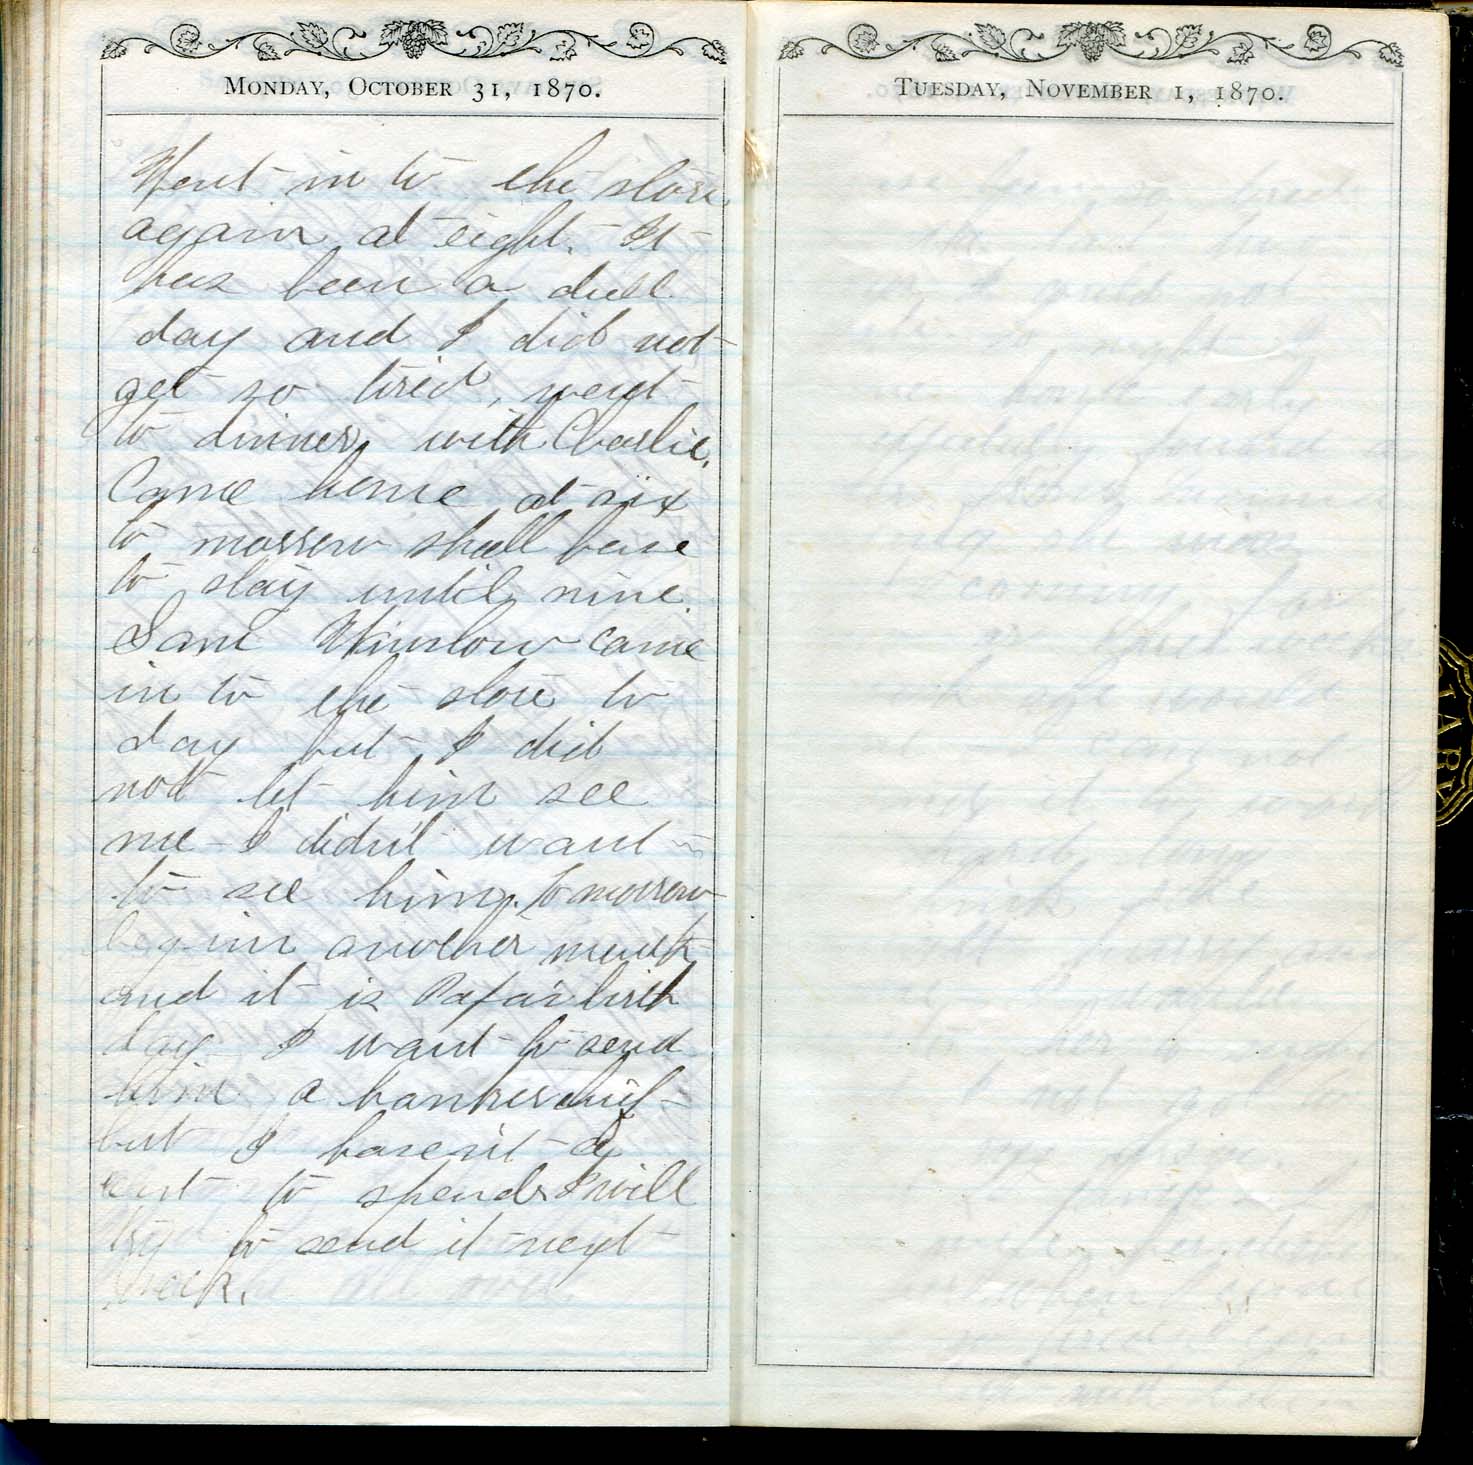 MONDAY, OCTOBER 31, 1870.
Went in to the store
again at eight. It
has been a dull
day and I did not
get so tired, went
to dinner with Charlie.
Came home at six
to morrow shall have
to stay until nine.
Sam Winslow came
in to the store to
day but I did
not let him see
me I didn't want
to see him. tomorrow
begins another month
and it is Papa's birth
day I want to send
him a hankerchief
but I haven't a
cent to spend I will
try to send it next
week.
TUESDAY, NOVEMBER 1, 1870.